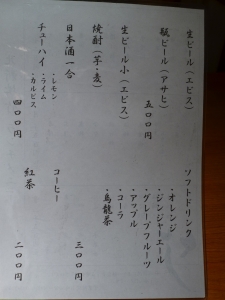 生ビール（エビス）
瓶ビール（アサヒ）
五〇〇円
生ビール小（エビス）
焼酎（芋・麦）
日本酒一合
チューハイ
・レモン
・ライム
・カルピス
四〇〇円
ソフトドリンク
・オレンジ
・ジンジャーエール
・グレープフルーツ
・アップル
・コーラ
・烏龍茶
三〇〇円
コーヒー
紅茶
二〇〇円